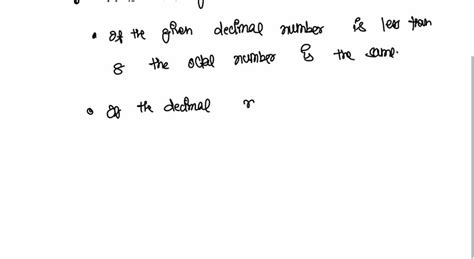 • If the given decimal number is less than
8 the octal number is the same.
• If the decimal